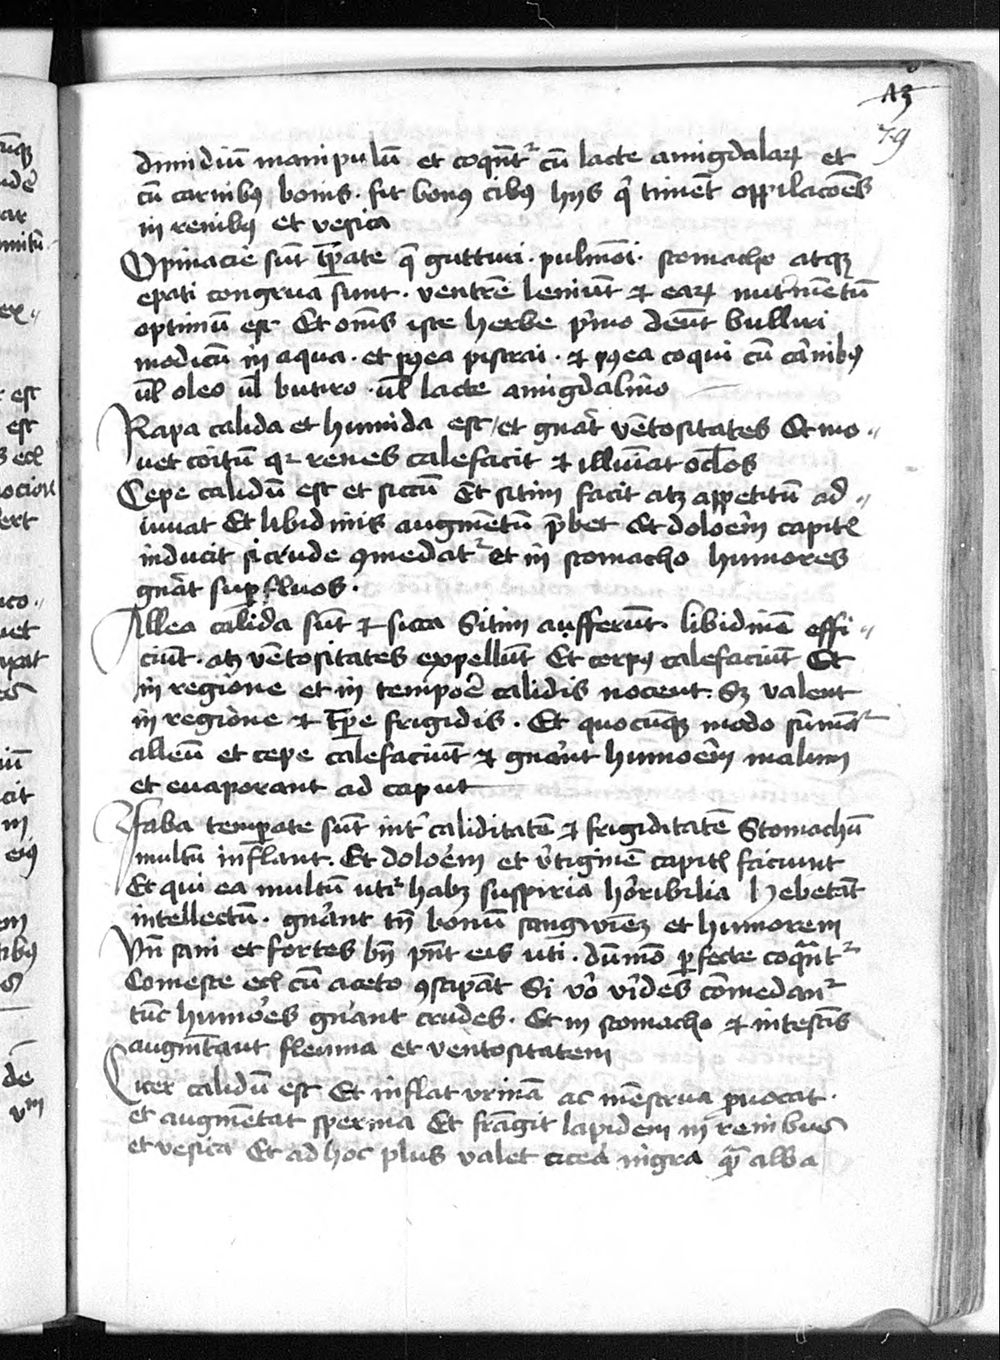 A3
79
dimidiū manipulū et coqn̄t᷑ cū lacte amigdalaꝝ et
cū carnibꝯ bonis · fit bonꝯ cibꝯ hijs q̇ timēt oppilacōēs
in renibꝯ et vesica
Spinacie sūt tp̄ate q̄ gutturi · pulmōi · stomacho atqꝫ
epati congrua sunt · ventrē leniūt ⁊ eaꝝ nut'mētū
optimū est Et om̄s iste herbe p'mo debēt bulliri
modicū in aqua · et p9ea pistrai · ⁊ p9ea coqui cū ca'nibꝯ
ul̄ oleo ul̄ butiro · ul̄ lacte amigdalino
Rapa calida et humida est / et gn̄at vētositates Et mo〃
uet coitū qꝛ renes calefacit ⁊ illuīat oc̄los
Cepe calidū est et siccū Et sitim facit atꝫ appetitū ad〃
iuuat Et libidinis augmētū p̄bet Et doloēm capitꝭ
inducit si crude ꝯmedat᷑ et in stomacho humores
gn̄at sup̄fluos ·
Allea calida sūt ⁊ sicca Sitim aufferūt · libidinē effi〃
ciūt · atꝫ vētositates expellūt Et corpꝯ calefaciūt Et
in regione et in tempoē calidis nocent · Sꝫ valent
in regione ⁊ tp̄e frigidis · Et quocūqꝫ modo sumāt᷑
alleū et cepe calefaciūt ⁊ gn̄ant humoēm malum
et euaporant ad caput
Faba temperate sūt int' caliditatē ⁊ frigiditatē Stomachū
multū inflant · Et doloēm et v'tiginē capitꝭ faciunt
Et qui ea multū utit᷑ habꝫ suspiria horibilia hebetāt
intellectū · gn̄ant tn̄ bonū sangwiēꝫ et humorem
Vn̄ sani et fortes bn̄ pn̄t eis uti · dūmō ꝑfecte coqn̄t᷑
Comeste ecꝭ cū aceto ꝯstipāt Si v'o v'ides cōmedant᷑
tūc humoēs gn̄ant crudos · Et in stomacho ⁊ intestīs
augmētant fleuma et ventositatem
Cicer calidū est Et inflat vrinā ac mēstrua ꝓuocat ·
et augmētat sperma Et frāgit lapidem in renibus
et vesica Et ad hoc plus valet cicera nigra qᷓ alba